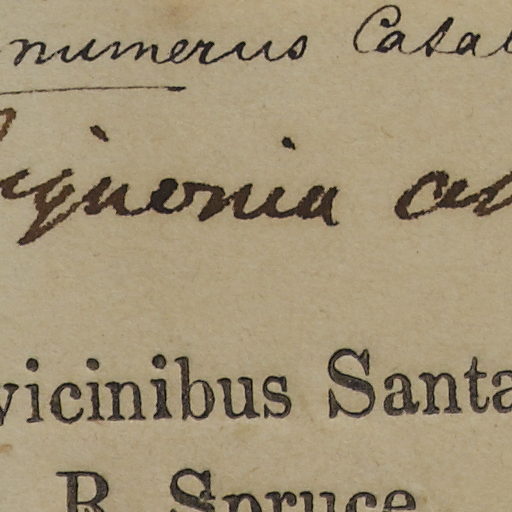 numerus Catal
ignonia
vicinibus Santa
R. Spruce